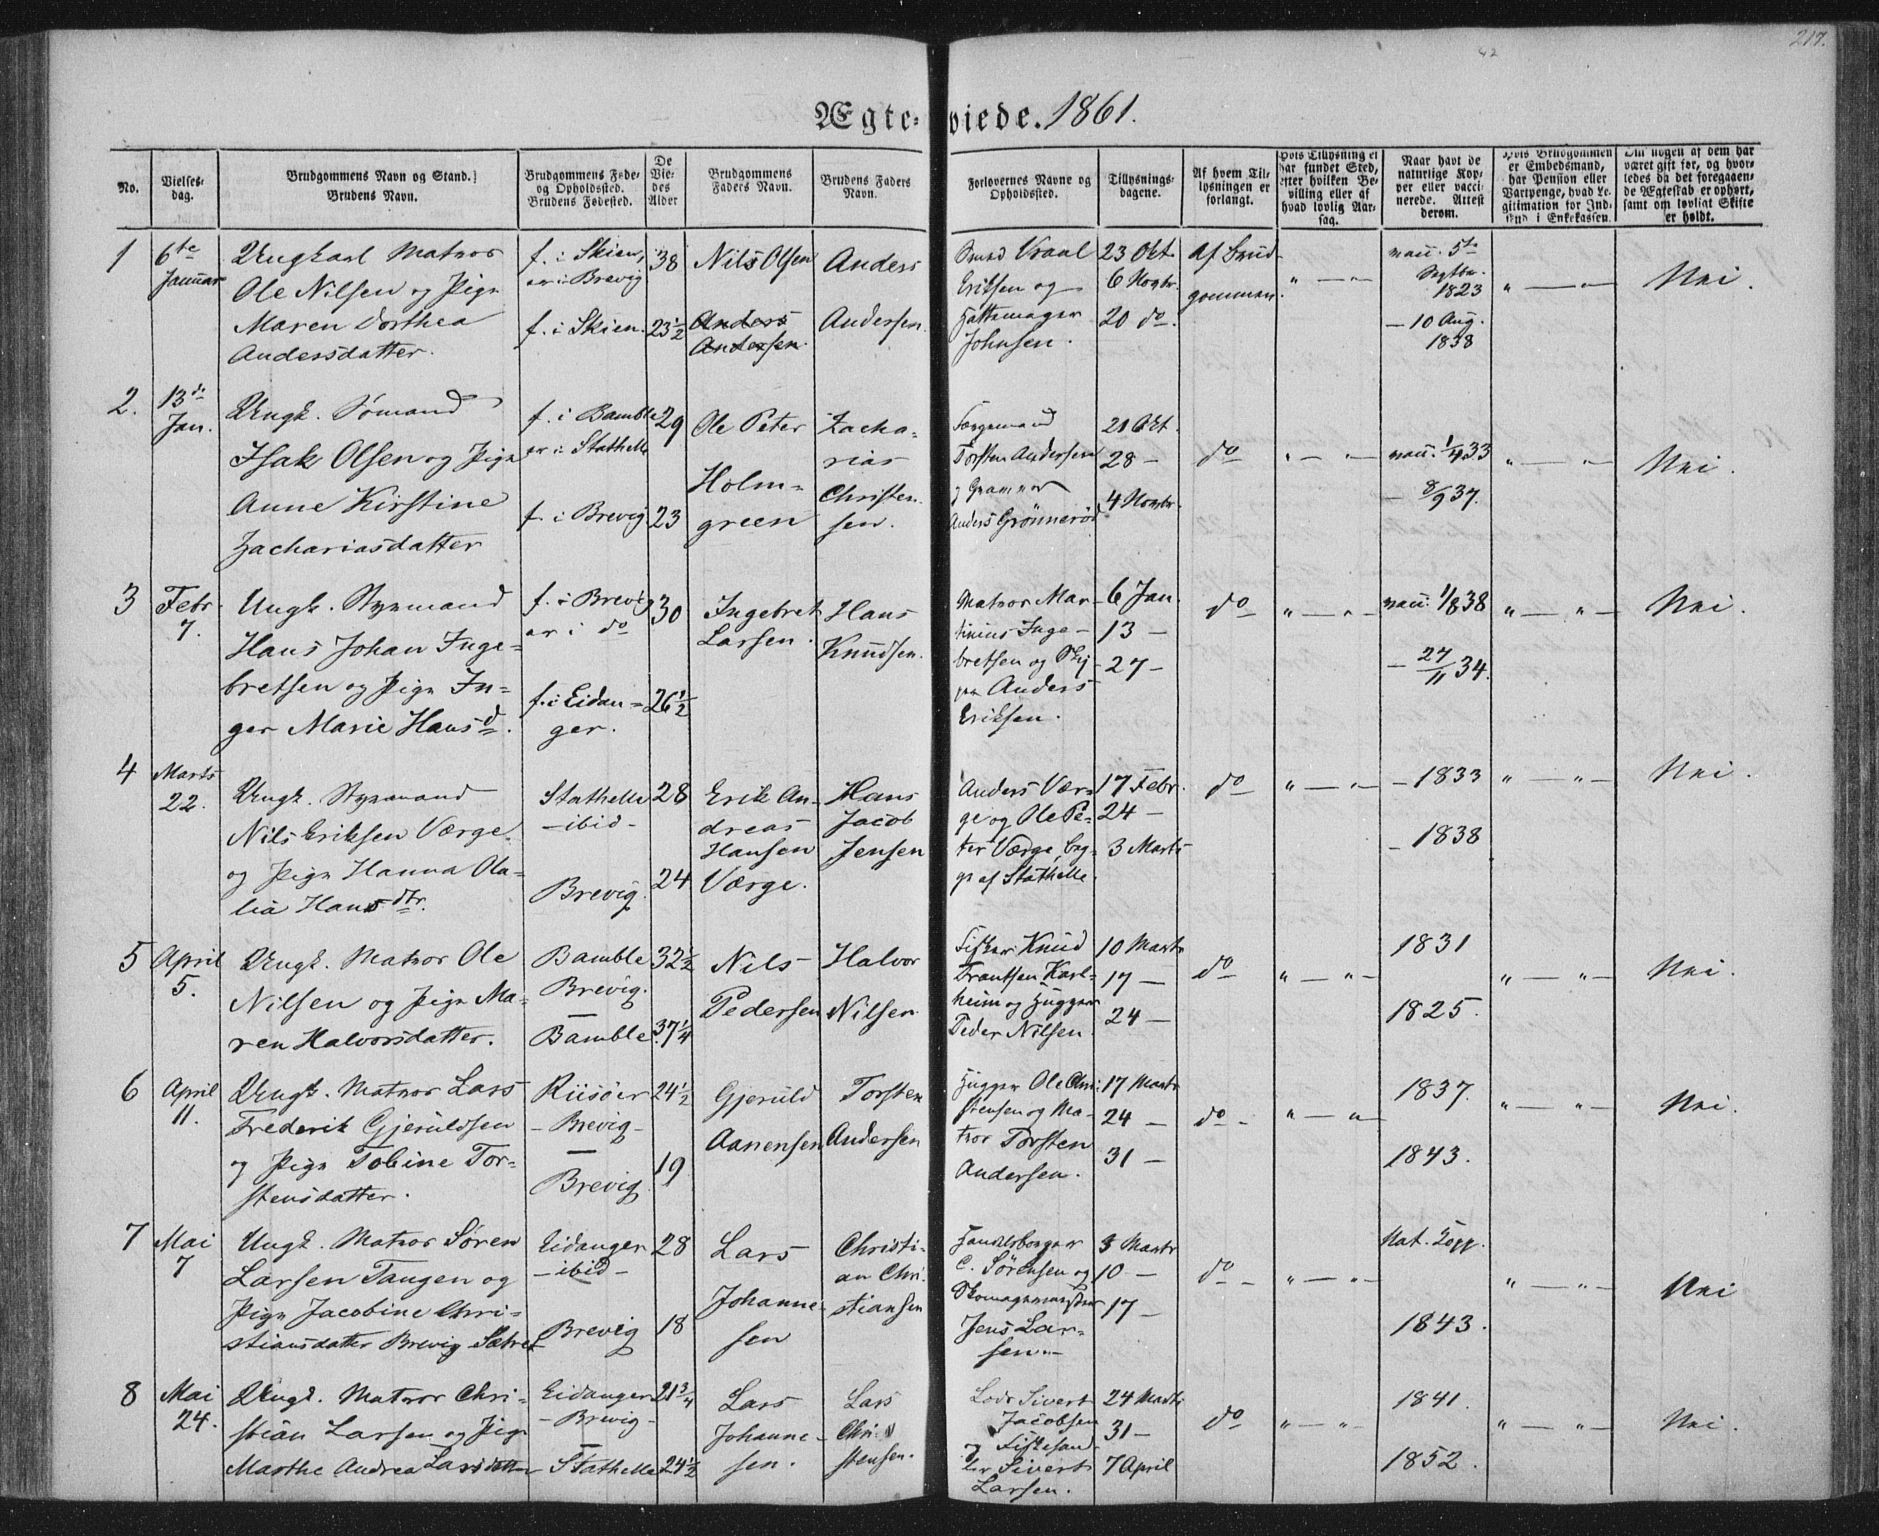 217.
Ægteviede. 1861.
No.
Vielsesdag.
Brudgommens Navn og Stand.
Brudens Navn.
Brudgommens Føde- og Opholdsted.
Brudens Fødested.
De Viedes Alder
Brudgommens Faders Navn.
Brudens Faders Navn.
Forlovernes Navne og Opholdsted.
Tillysningsdagene.
Af hvem Tillysningen er forlangt.
Hvis Tillysning ei har fundet Sted, efter hvilken Bevilling eller af hvad lovlig Aarsag.
Naar havt de naturlige Kopper eller vaccinerede. Attest derom.
Hvis Brudgommen er Embedsmand, har Pension eller Vartpenge, hvad Legitimation for Indskud i Enkekassen.
Om nogen af dem har været gift før, og hvorledes da det foregaaende Ægteskab er ophørt, samt om lovligt Skifte er holdt.
1
6te Januar
Ungkarl Matros
Ole Nilsen og Pige
Maren Dorthea
Andersdatter.
f. i Skien,
er i Brevig
f. i Skien.
38
23½
Nils Olsen
Anders
Andersen.
Anders
Andersen.
Eriksen og
Hattemager
Johnsen.
23 Okt.
6 Novbr.
20 do.
Af Brudgommen.
" — " —
vacc. 5te
Septbr.
1823
— 10 Aug.
1838
" — " —
Nei.
2.
13de Jan.
Ungk. Sømand
Isak Olsen og Pige
Anne Kirstine
Zachariasdatter
f. i Bamble
er i Stathelle
f. i Brevig
29
23
Ole Peter
Holmgreen
Zacharias
Christensen.
Torsten Andersen
Anders Grønnerød
21 Okt.
28 —
4 Novbr.
do
" — " —
vacc. 1/4 33
— 8/9 37.
" — " —
Nei.
3
Febr 7.
Ungk. Styrmand
Hans Johan Inge-
bretsen og Pige In-
ger Marie Hansd.
f. i Brevig
er i do
f. i Eidan-
ger.
30
26½
Ingebret
Larsen.
Hans
Knudsen.
Matros Mar-
tinius Inge-
bretsen og Skip-
per Anders
Eriksen.
6 Jan.
13 —
27 —
do
" — " —
vacc. 1/8 38
— 27/11 34.
" — " —
Nei.
4
Marts 22.
Ungk. Styrmand
Nils Eriksen Værge
og Pige Hanna Ola-
lia Hansdtr.
Stathelle
— ibid —
Brevig.
28
24
Erik An-
dreas
Hansen
Værge.
Hans
Jacob
Jensen
Anders Vær-
ge og Ole Pe-
ter Værge, beg-
ge af Stathelle.
17 Febr.
24 —
3 Marts
do
" — " —
— 1833
— 1838
" — " —
Nei.
5
April 5.
Ungk. Matros Ole
Nilsen og Pige Ma-
ren Halvorsdatter.
Bamble
Brevig.
—
Bamble
32½
37¼
Nils
Pedersen
Halvor
Nilsen
Fisker Knud
Frantsen Karl-
heim og Hugger
Peder Nilsen.
10 Marts
17 —
24 —
do
" — " —
1831
1825.
" — " —
Nei.
6
April 11.
Ungk. Matros Lars
Frederik Gjeruldsen
og Pige Tobine Tor-
stensdatter.
Riisøer
— Brevig —
—
Brevig
24½
19
Gjeruld
Aanensen
Torsten
Andersen
Hugger Ole Chri-
stensen og Ma-
tros Torsten
Andersen.
17 Marts
24 —
31 —
do -
" — " —
1837.
1843.
" — " —
Nei.
7
Mai 7
Ungk. Matros Søren
Larsen Tangen og
Pige Jacobine Chri-
stiansdatter Brevig Sætret
Eidanger
— ibid —
Brevig
28
18
Lars
Johanne-
sen
Christi-
an Chri-
stiansen
Handelsborger
C. Sørensen og
Skomagermester
Jens Lar-
sen.
3 Marts
10 —
17 —
do -
" — " —
Nat. Kopp.
1843.
" — " —
Nei
8
Mai 24.
Ungk. Matros Chri-
stian Larsen og Pige
Marthe Andrea Larsdatter
Eidanger
— Brevig —
—
Stathelle
21¾
24½
Lars
Johanne-
sen.
Lars
Chri-
stensen.
Lods Sivert
Jacobsen
og
Sivert
Larsen.
24 Marts
31 —
7 April
do
" — " —
1841.
1852.
" — " —
Nei.